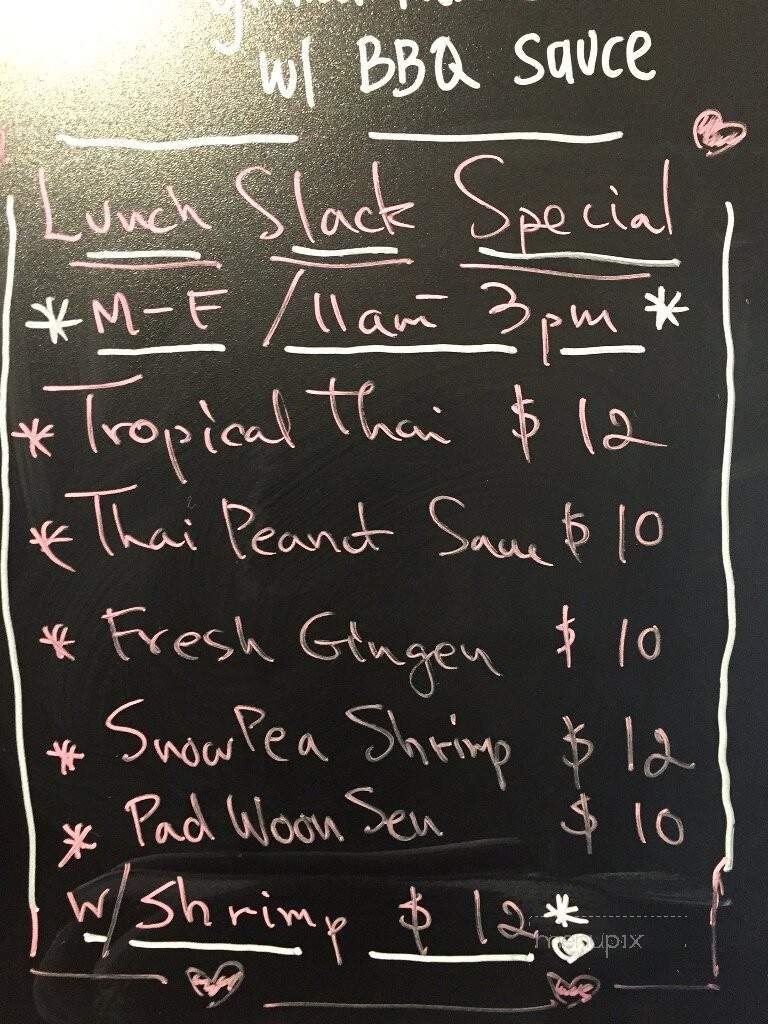 w/ BBQ Sauce
Lunch Slack Special
* M-F / 11am - 3pm *
* Tropical Thai $ 12
* Thai Peanut Sauce $ 10
* Fresh Ginger $ 10
* Snow Pea Shrimp $ 12
* Pad Woon Sen $ 10
w/ Shrimp $ 12 *
menupix